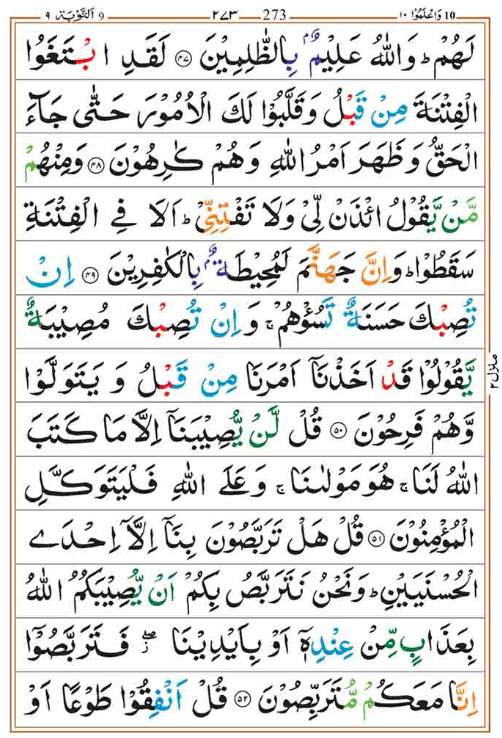 اَلتَّوْبَة ٩ 9 ٢٧٣ 273 وَاعْلَمُوْٓا ١٠ 10
لَهُمْ ؕ وَاللّٰهُ عَلِيْمٌۢ بِالظّٰلِمِيْنَ ﴿۴۷﴾ لَقَدِ ابْتَغَوُا
الْفِتْنَةَ مِنْ قَبْلُ وَقَلَّبُوْا لَكَ الْاُمُوْرَ حَتّٰى جَآءَ
الْحَقُّ وَظَهَرَ اَمْرُ اللّٰهِ وَهُمْ كٰرِهُوْنَ ﴿۴۸﴾ وَمِنْهُمْ
مَّنْ يَّقُوْلُ ائْذَنْ لِّىْ وَلَا تَفْتِنِّىْ ؕ اَلَا فِى الْفِتْنَةِ
سَقَطُوْا ؕ وَاِنَّ جَهَنَّمَ لَمُحِيْطَةٌۢ بِالْكٰفِرِيْنَ ﴿۴۹﴾ اِنْ
تُصِبْكَ حَسَنَةٌ تَسُؤْهُمْ ۚ وَاِنْ تُصِبْكَ مُصِيْبَةٌ
يَّقُوْلُوْا قَدْ اَخَذْنَاۤ اَمْرَنَا مِنْ قَبْلُ وَيَتَوَلَّوْا
وَّهُمْ فَرِحُوْنَ ﴿۵۰﴾ قُلْ لَّنْ يُّصِيْبَنَاۤ اِلَّا مَا كَتَبَ
اللّٰهُ لَنَا ۚ هُوَ مَوْلٰٮنَا ۚ وَعَلَى اللّٰهِ فَلْيَتَوَكَّلِ
الْمُؤْمِنُوْنَ ﴿۵۱﴾ قُلْ هَلْ تَرَبَّصُوْنَ بِنَاۤ اِلَّاۤ اِحْدَى
الْحُسْنَيَيْنِ ؕ وَنَحْنُ نَتَرَبَّصُ بِكُمْ اَنْ يُّصِيْبَكُمُ اللّٰهُ
بِعَذَابٍ مِّنْ عِنْدِهٖۤ اَوْ بِاَيْدِيْنَا ۖ ز فَتَرَبَّصُوْۤا
اِنَّا مَعَكُمْ مُّتَرَبِّصُوْنَ ﴿۵۲﴾ قُلْ اَنْفِقُوْا طَوْعًا اَوْ
منزل ٢